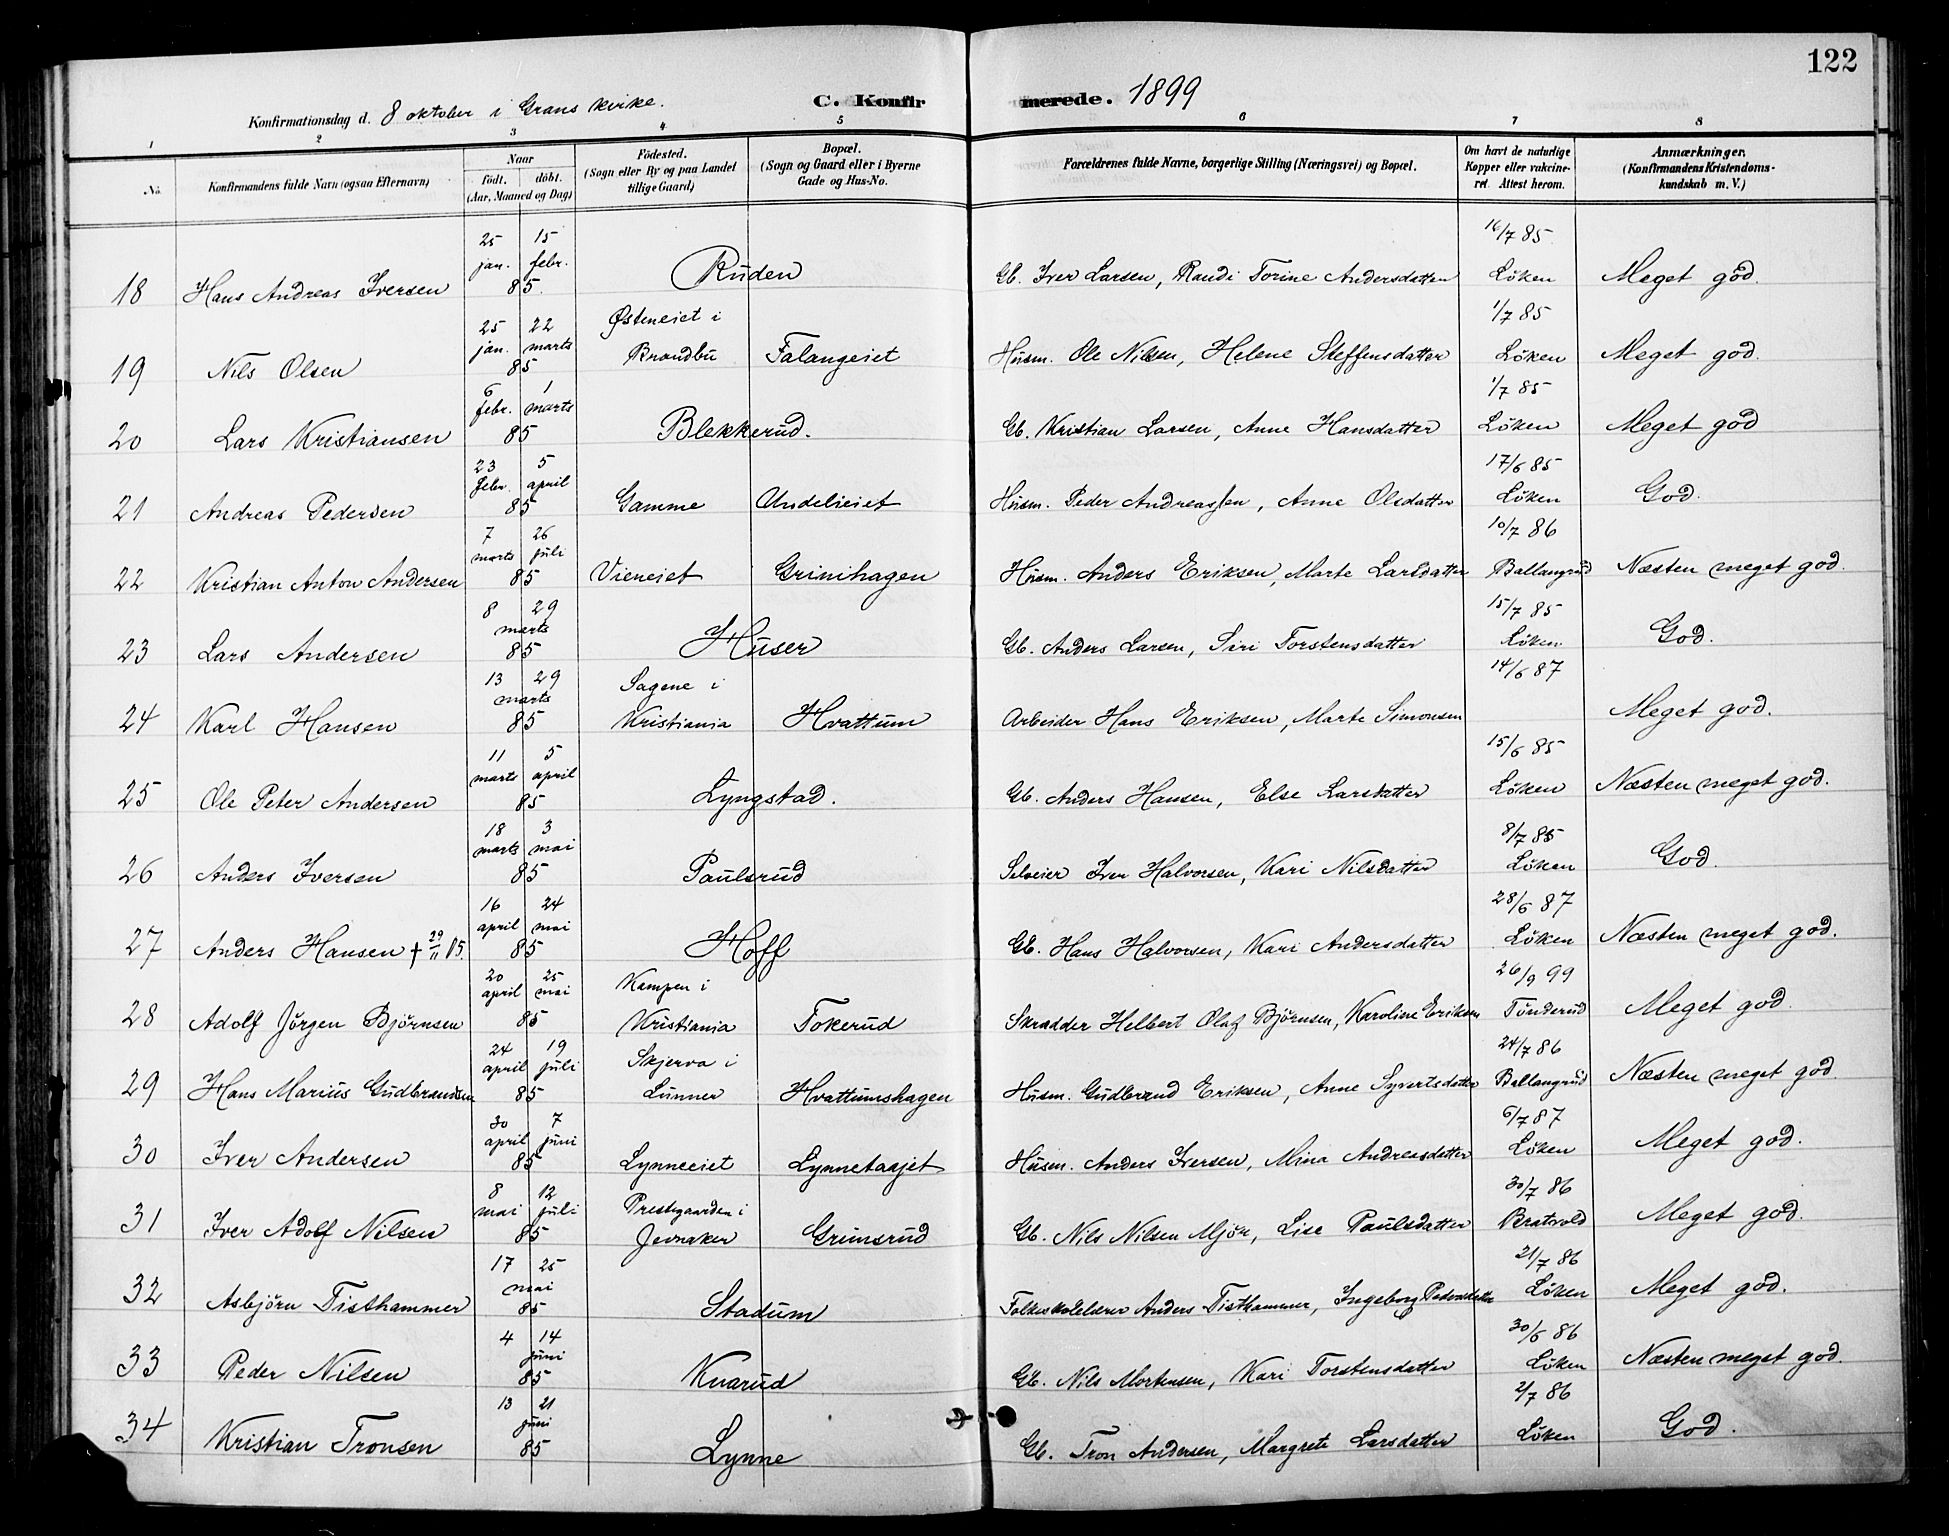 122
Konfirmationsdag d. 8 oktober i Grans kirke. C. Konfirmerede. 1899
1 2 3 4 5 6 7 8
No. | Konfirmandens fulde Navn (ogsaa Efternavn) | Naar födt. döbt. (Aar, Maaned og Dag) | Födested. (Sogn eller By og paa Landet tillige Gaard) | Bopæl. (Sogn og Gaard eller i Byerne Gade og Hus-No. | Forældrenes fulde Navne, borgerlige Stilling (Næringsvei) og Bopæl. | Om havt de naturlige Kopper eller vakcineret. Attest herom. | Anmærkninger. (Konfirmandens Kristendomskundskab m. V.)
18 Hans Andreas Iversen 25 jan. 15 febr. 85. Ruden Gb. Iver Larsen, Randi Torine Andersdatter 16/7 85 Löken Meget god.
19 Nils Olsen 25 jan. 22 marts 85 Østeneiet i Brandbu Falangeiet Husm. Ole Nilsen, Helene Steffensdatter 1/7 85 Löken Meget god.
20 Lars Kristiansen 6 febr. 1 marts 85 Blekkerud. Gb. Kristian Larsen, Anne Hansdatter 1/7 85 Löken Meget god
21 Andreas Pedersen 23 febr. 5 april 85 Gamme Undelieiet Husm. Peder Andreassen, Anne Olsdatter 17/6 85 Löken God.
22 Kristian Anton Andersen 7 marts 26 juli 85 Vieneiet Grinihagen Husm. Anders Eriksen, Marte Larsdatter 10/7 86 Ballangrud Næsten meget god.
23 Lars Andersen 8 29 marts 85 Huser Gb. Anders Larsen, Siri Torstensdatter 15/7 85 Löken God.
24 Karl Hansen 13 29 marts 85 Sagene i Kristiania Hvattum Arbeider Hans Eriksen, Marte Simonsen 14/6 87 Meget god.
25 Ole Peter Andersen 11 marts 5 april 85 Lyngstad. Gb. Anders Hansen, Else Larsdatter 15/6 85 Löken Næsten meget god.
26 Anders Iversen 18 marts 3 mai 85 Paulsrud Selveier Iver Halvorsen, Kari Nilsdatter 8/7 85 Löken God.
27 Anders Hansen + 29/11 15. 16 april 24 mai 85 Hoff Gb. Hans Halvorsen, Kari Andersdatter 28/6 87 Löken Næsten meget god.
28 Adolf Jörgen Björnsen 20 april 25 mai 85 Kampen i Kristiania Tokerud Skradder Helbert Olaf Björnsen, Karoline Eriksen 26/9 99 Tönderud Meget god.
29 Hans Marius Gudbrandsen 24 april 19 juli 85 Skjerva i Lunner Hvattumshagen Husm. Gudbrand Eriksen, Anne Syvertsdatter 24/7 86 Ballangrud Næsten meget god
30 Iver Andersen 30 april 7 juni 85 Lynneeiet Lynnetaajet Husm. Anders Iversen, Mina Andreasdatter 6/7 87 Löken Meget god.
31 Iver Adolf Nilsen 8 mai 12 juli 85 Prestegaarden i Jevnaker Grimsrud Gb. Nils Nilsen Mjör, Lise Paulsdatter 30/7 86 Bratvold Meget god.
32 Asbjörn Tisthammer 17 25 mai 85 Stadum Folkeskolelærer Anders Tisthammer, Ingeborg Pedersdatter 21/7 86 Löken Meget god.
33 Peder Nilsen 4 14 juni 85 Knarud Gb. Nils Mortensen, Kari Torstensdatter 30/6 86 Löken Næsten meget god.
34 Kristian Tronsen 13 21 juni 85 Lynne Gb. Tron Andersen, Margrete Larsdatter 2/7 86 Löken God.